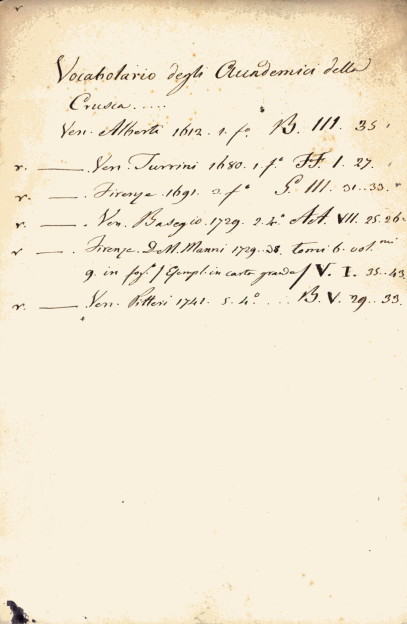 Vocabolario degli Accademici della
Crusca.....
Ven. Alberti 1612. 1. fº B. III. 35
r. —— . Ven. Turrini 1680. 1. fº FF. I. 27.
r. —— . Firenze 1691. 3. fº Gº III. 31..33.
r. —— . Ven. Basegio. 1729. 2. 4º AA. VII. 25.26.
r —— . Firenze. D. M. Manni 1729..38. tomi 6. vol.mi
9. in fogº / Esempl. in carta grande / V. I. 35..43
r. —— . Ven. Pitteri 1741. 5. 4º ... B. V. 29..33.